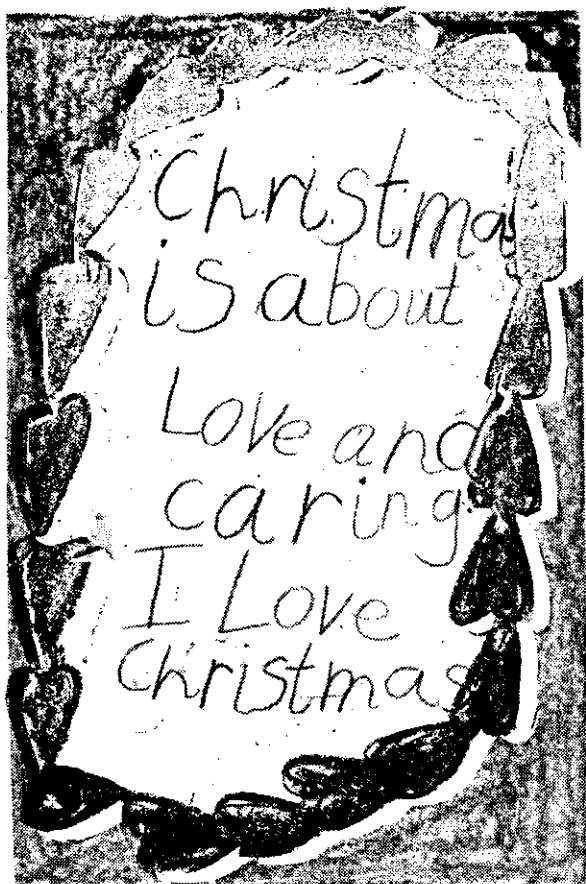 Christmas
is about
Love and
caring
I Love
Christmas